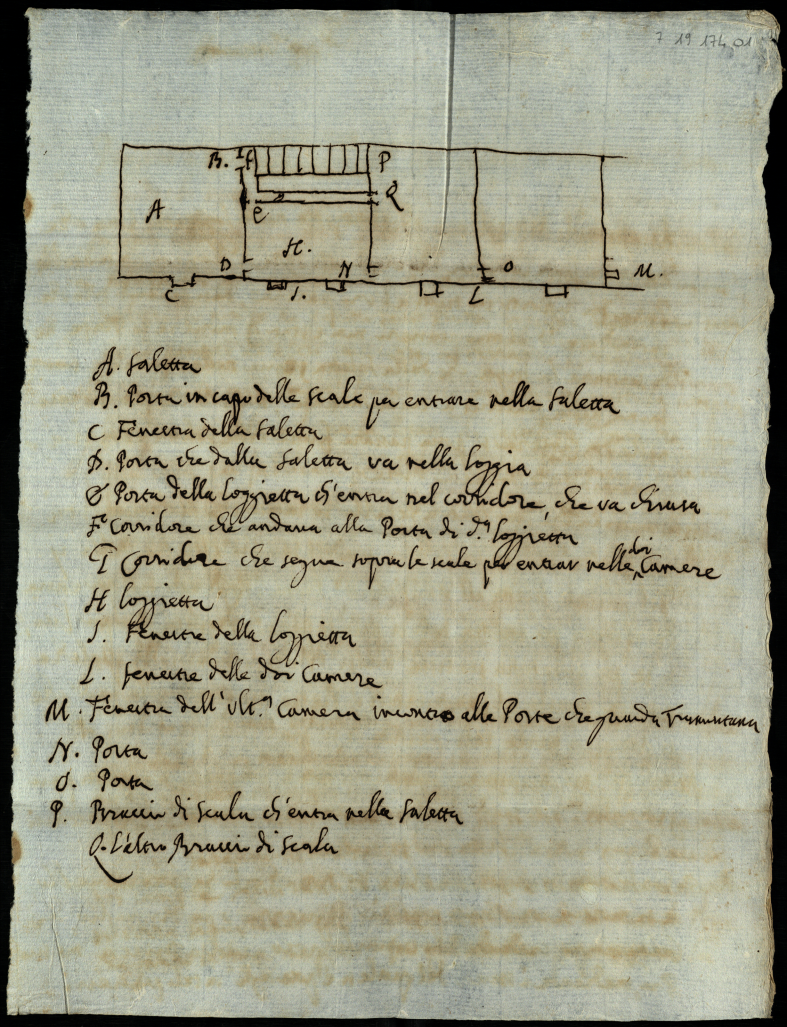 7 19 174 01
B. I f P
A e Q
H.
D N O M.
C I. L
A. Saletta
B. Porta in capo delle scale per entrare nella Saletta
C Fenestra della Saletta
D. Porta che dalla Saletta va nella loggia
Porta della loggietta ch'entra nel corridore, che va chiusa
F Corridore che andava alla Porta di d.ª loggietta
Corridore che segue sopra le scale per entrar nelle doi Camere
H loggietta
I. Fenestre della loggietta
L. fenestre delle doi Camere
M. Fenestra dell'ult.ª Camera incontro alle Porte che guarda Tramontana
N. Porta
O. Porta
P. Braccio di scala ch'entra nella Saletta
Q. L'altro Braccio di scala